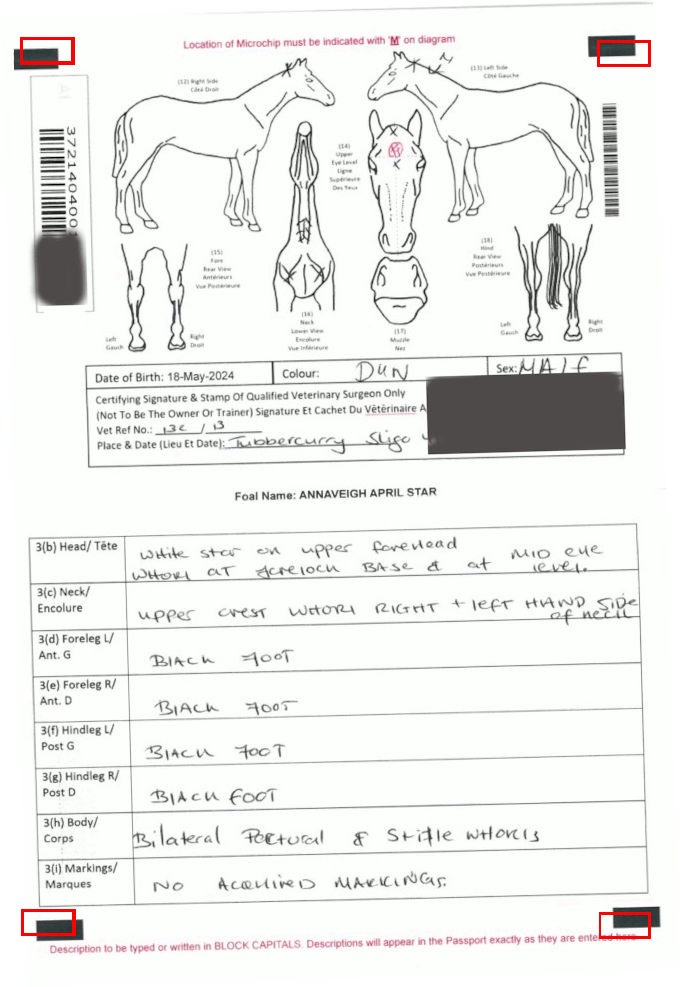 Location of Microchip must be indicated with 'M' on diagram
(12) Right Side
Côté Droit
(13) Left Side
Côté Gauche
M
372140400
(14)
Upper
Eye Level
Ligne
Supérieure
Des Yeux
(15)
Fore
Rear View
Antérieurs
Vue Postérieure
(18)
Hind
Rear View
Postérieurs
Vue Postérieure
Left
Gauch
Right
Droit
(16)
Neck
Lower View
Encolure
Vue Inférieure
(17)
Muzzle
Nez
Left
Gauch
Right
Droit
Date of Birth: 18-May-2024 Colour: DUN Sex: MAlf
Certifying Signature & Stamp Of Qualified Veterinary Surgeon Only
(Not To Be The Owner Or Trainer) Signature Et Cachet Du Vétérinaire A
Vet Ref No.: 13c / 13
Place & Date (Lieu Et Date): Tubbercurry Sligo
Foal Name: ANNAVEIGH APRIL STAR
3(b) Head/ Tête
White star on upper forehead
WHORl AT forelock BASE & at MID eye level.
3(c) Neck/
Encolure
upper crest WHORl RIGHT + left HAND SIDE
of neck
3(d) Foreleg L/
Ant. G
BlACK FOOT
3(e) Foreleg R/
Ant. D
BlACK FOOT
3(f) Hindleg L/
Post G
BlACK FOOT
3(g) Hindleg R/
Post D
BlACK FOOT
3(h) Body/
Corps
Bilateral Pectural & Stifle WHORlS
3(i) Markings/
Marques
NO ACQUIRED MARKINGS.
Description to be typed or written in BLOCK CAPITALS. Descriptions will appear in the Passport exactly as they are entered here